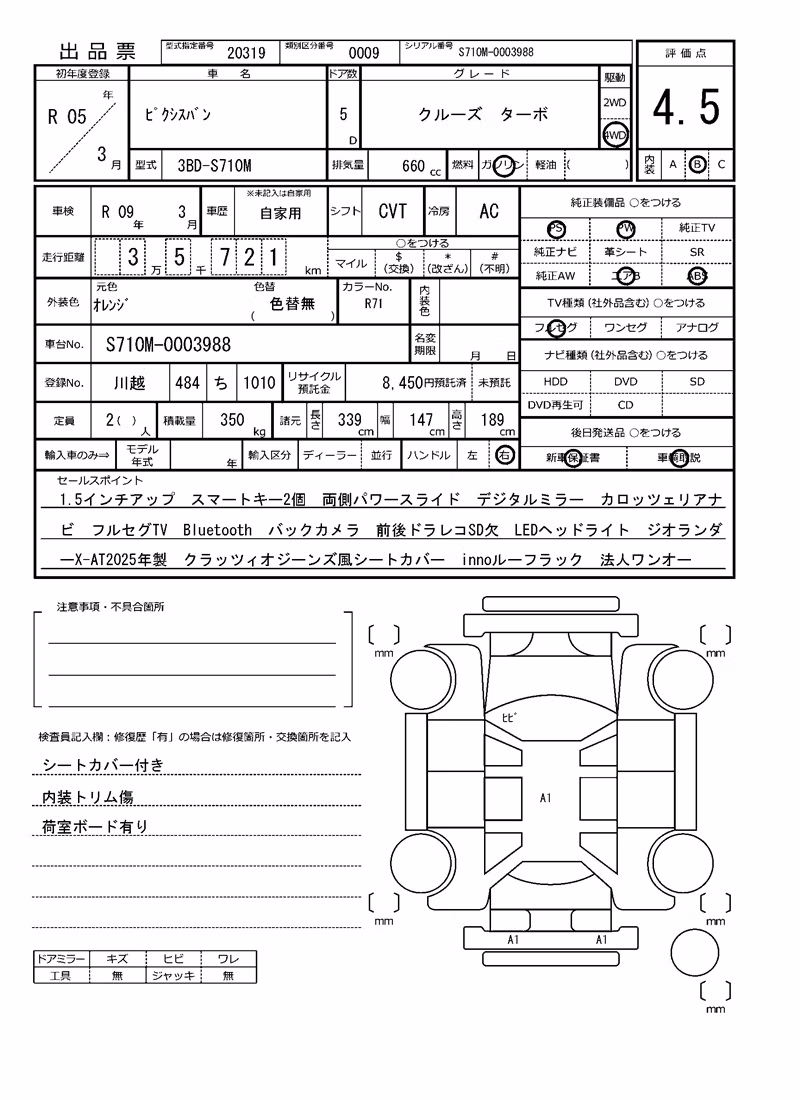 出品票 型式指定番号 20319 類別区分番号 0009 シリアル番号 S710M-0003988 評価点
初年度登録 車名 ドア数 グレード 駆動
R 05 年 3 月 ﾋﾟｸｼｽﾊﾞﾝ 5 D クルーズ ターボ 2WD 4WD 4.5
型式 3BD-S710M 排気量 660 cc 燃料 ガソリン 軽油 ( ) 内装 A B C
車検 R 09 年 3 月 車歴 ※未記入は自家用 自家用 シフト CVT 冷房 AC
走行距離 3 万 5 千 7 2 1 km ○をつける マイル $ (交換) * (改ざん) # (不明)
外装色 元色 ｵﾚﾝｼﾞ 色替 ( 色替無 ) カラーNo. R71 内装色
車台No. S710M-0003988 名変期限 月 日
登録No. 川越 484 ち 1010 リサイクル預託金 8,450円預託済 未預託
定員 2( ) 人 積載量 350 kg 諸元 長さ 339 cm 幅 147 cm 高さ 189 cm
輸入車のみ⇒ モデル年式 年 輸入区分 ディーラー 並行 ハンドル 左 右
純正装備品 ○をつける
PS PW 純正TV
純正ナビ 革シート SR
純正AW エアB ABS
TV種類(社外品含む) ○をつける
フルセグ ワンセグ アナログ
ナビ種類(社外品含む) ○をつける
HDD DVD SD
DVD再生可 CD
後日発送品 ○をつける
新車保証書 車輌取説
セールスポイント
1.5インチアップ スマートキー2個 両側パワースライド デジタルミラー カロッツェリアナ
ビ フルセグTV Bluetooth バックカメラ 前後ドラレコSD欠 LEDヘッドライト ジオランダ
ーX-AT2025年製 クラッツィオジーンズ風シートカバー innoルーフラック 法人ワンオー
注意事項・不具合箇所
検査員記入欄：修復歴「有」の場合は修復箇所・交換箇所を記入
シートカバー付き
内装トリム傷
荷室ボード有り
ドアミラー キズ ヒビ ワレ
工具 無 ジャッキ 無
〔 〕 mm
〔 〕 mm
ﾋﾋﾞ
A1
〔 〕 mm
〔 〕 mm
A1 A1
〔 〕 mm